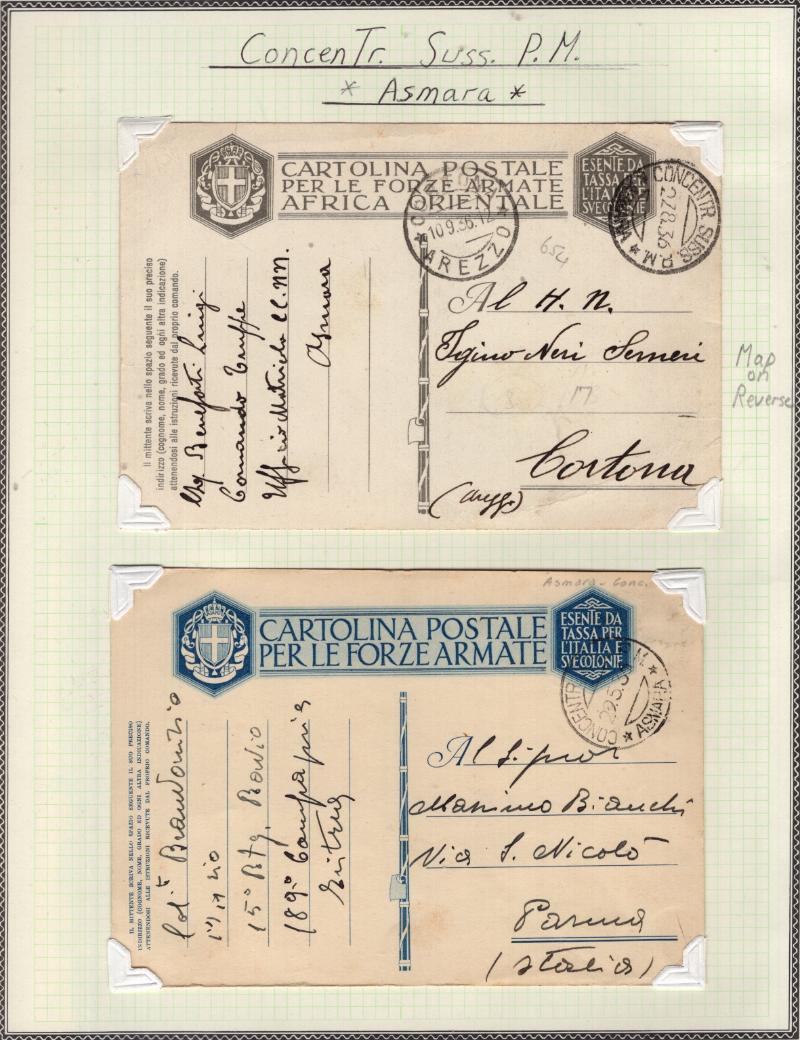 Concentr. Suss. P.M.
* Asmara *
CARTOLINA POSTALE
PER LE FORZE ARMATE
AFRICA ORIENTALE
ESENTE DA
TASSA PER
L'ITALIA E
SVE COLONIE
CONCENTR. SUSS. P.M.
27.8.36
10.9.36.12
AREZZO
654
Il mittente scriva nello spazio seguente il suo preciso
indirizzo (cognome, nome, grado ed ogni altra indicazione)
attenendosi alle istruzioni ricevute dal proprio comando.
Luigi
Comando Truppe
Ufficio Matricola CC.NN.
Asmara
Al H. N.
Igino Neri Serneri
17
Cortona
Map
on
Reverse
Asmara - Conc.
CARTOLINA POSTALE
PER LE FORZE ARMATE
ESENTE DA
TASSA PER
L'ITALIA E
SVE COLONIE
CONCENTR
29.5.3
* ASMARA *
IL MITTENTE SCRIVA NELLO SPAZIO SEGUENTE IL SUO PRECISO
INDIRIZZO (COGNOME, NOME, GRADO ED OGNI ALTRA INDICAZIONE)
ATTENENDOSI ALLE ISTRUZIONI RICEVUTE DAL PROPRIO COMANDO.
15° Btg.
189° Compagnia
Eritrea
Al Signor
Massimo Bianchi
Via S. Nicolò
Parma
(Italia)